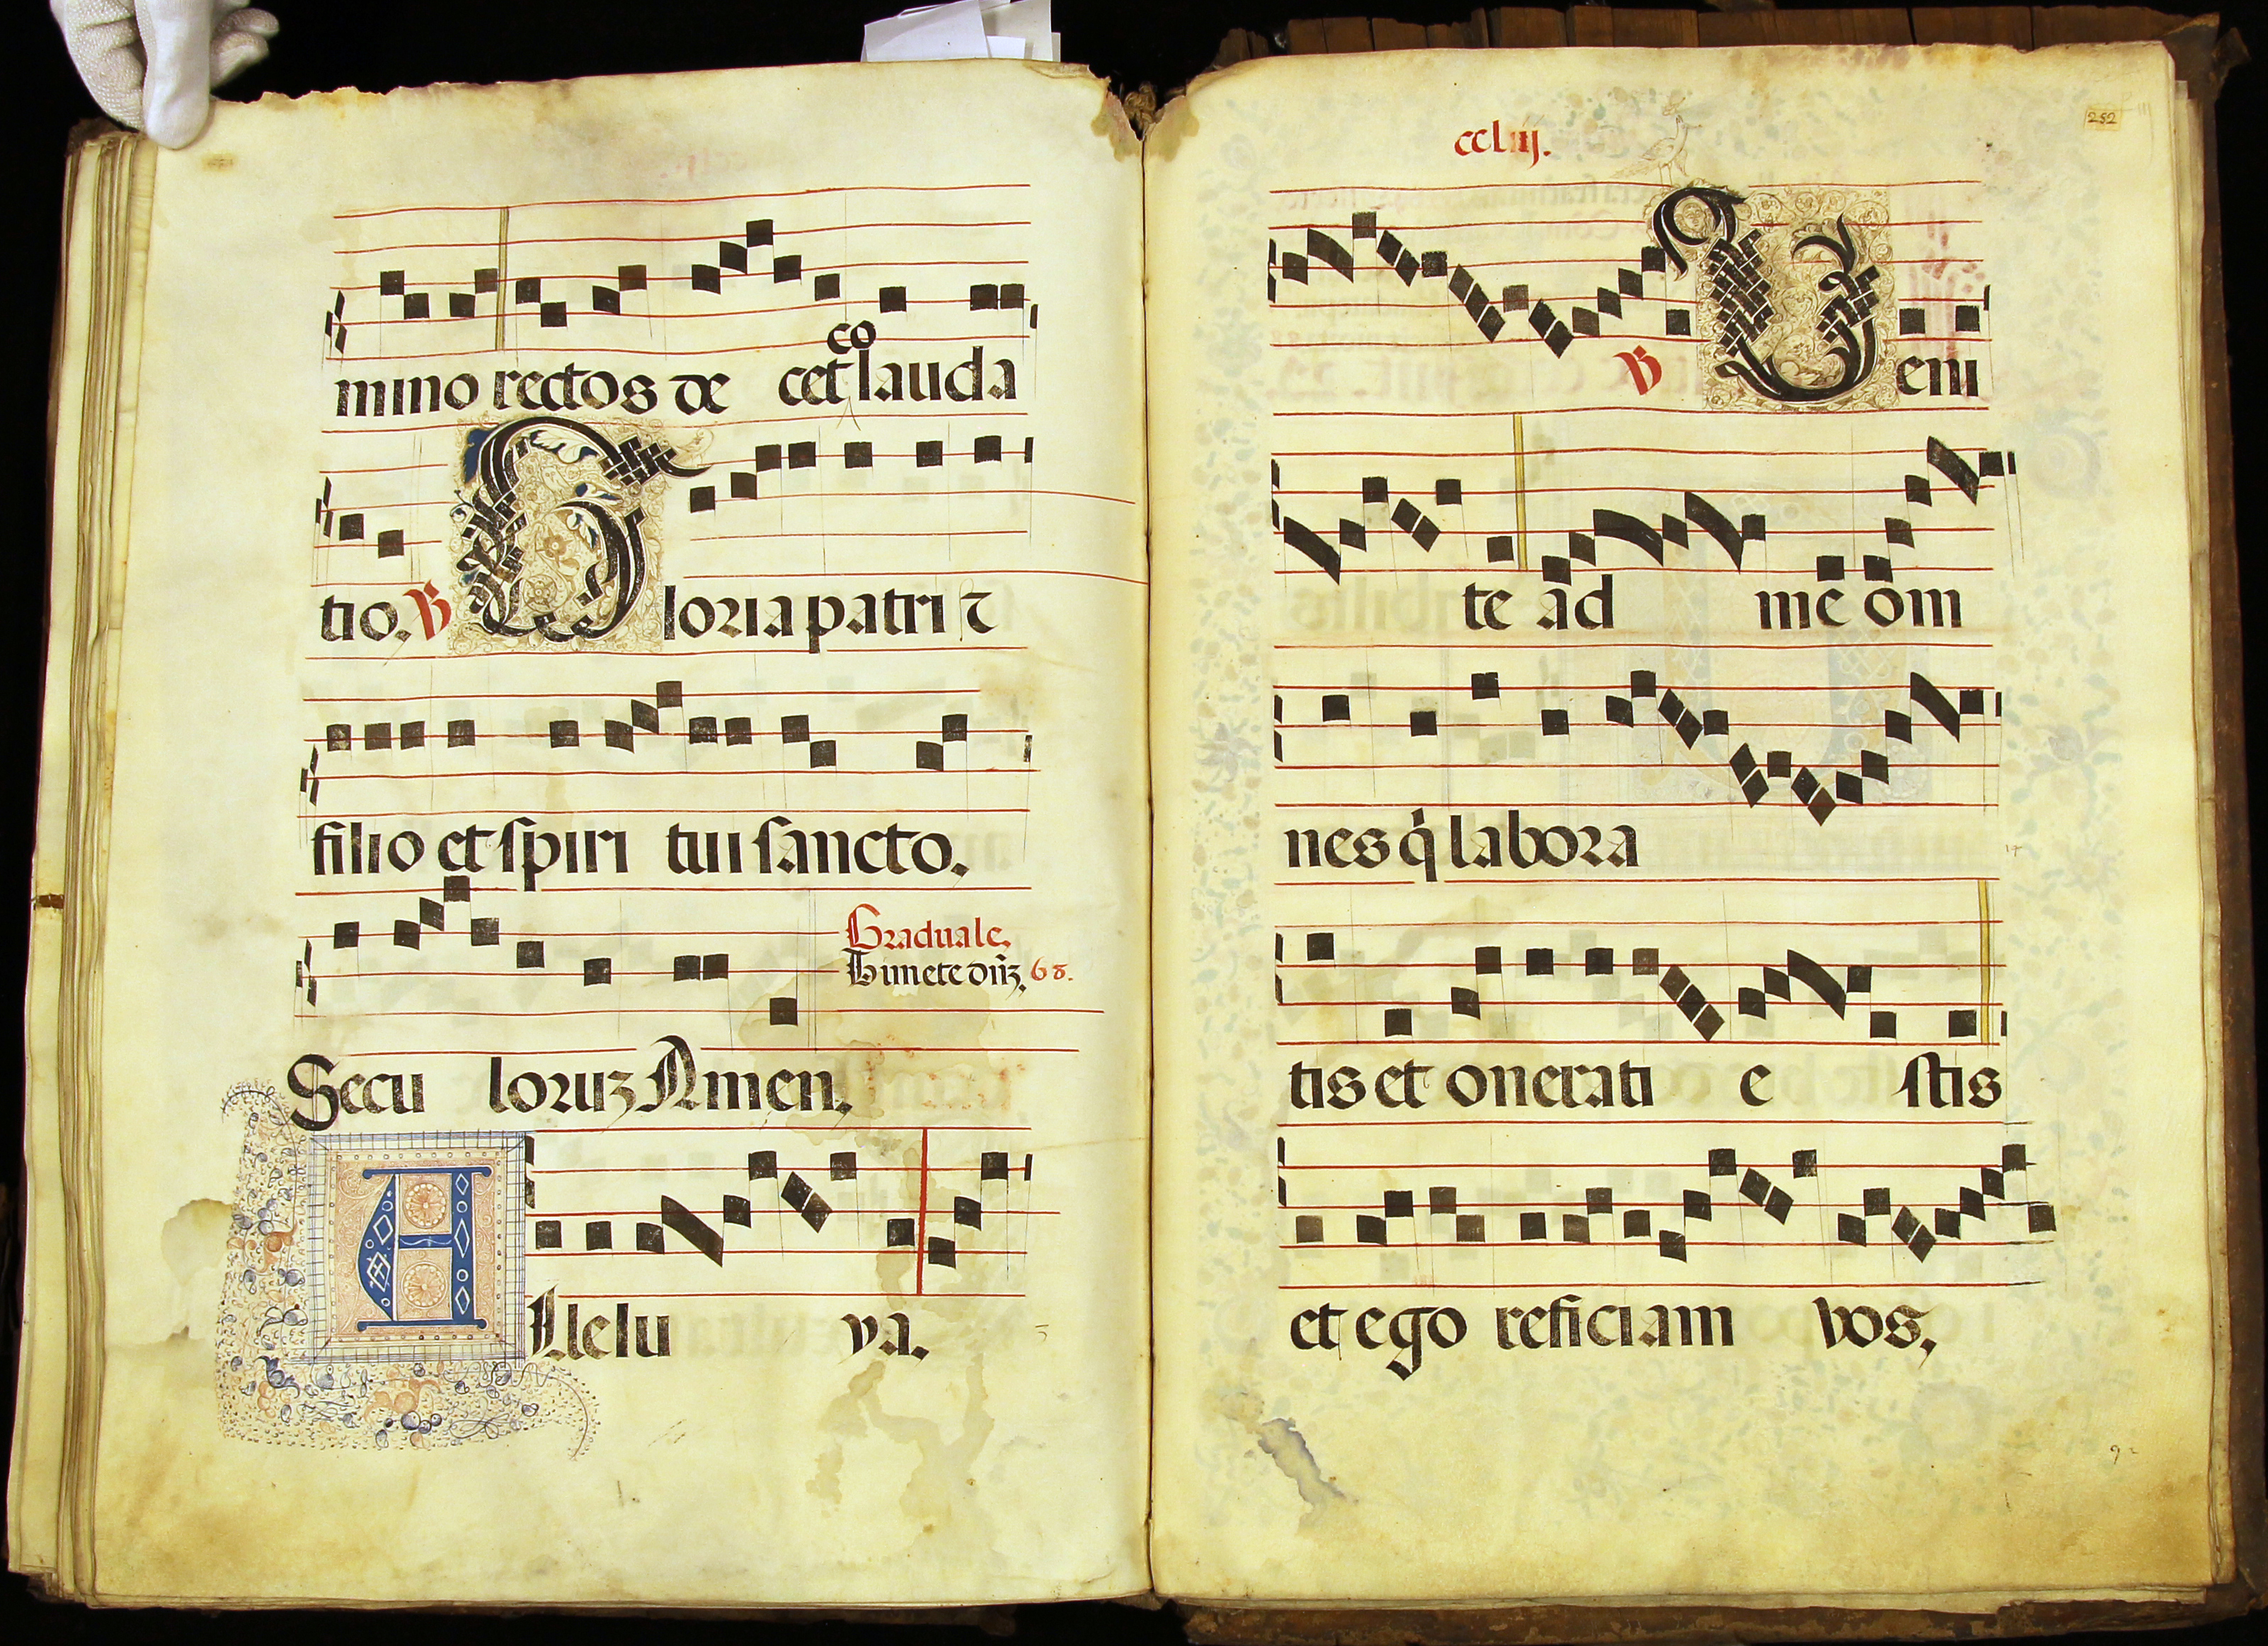 mino rectos de cet co lauda
tio. V Gloria patri ⁊
filio et spiri tui sancto.
Graduale.
Timete dñꝫ. 68.
Secu loruꝫ Amen.
Allelu ya.
ccliij.
252
V Veni
te ad me om
nes q̇ labora
tis et onerati e stis
et ego reficiam vos.